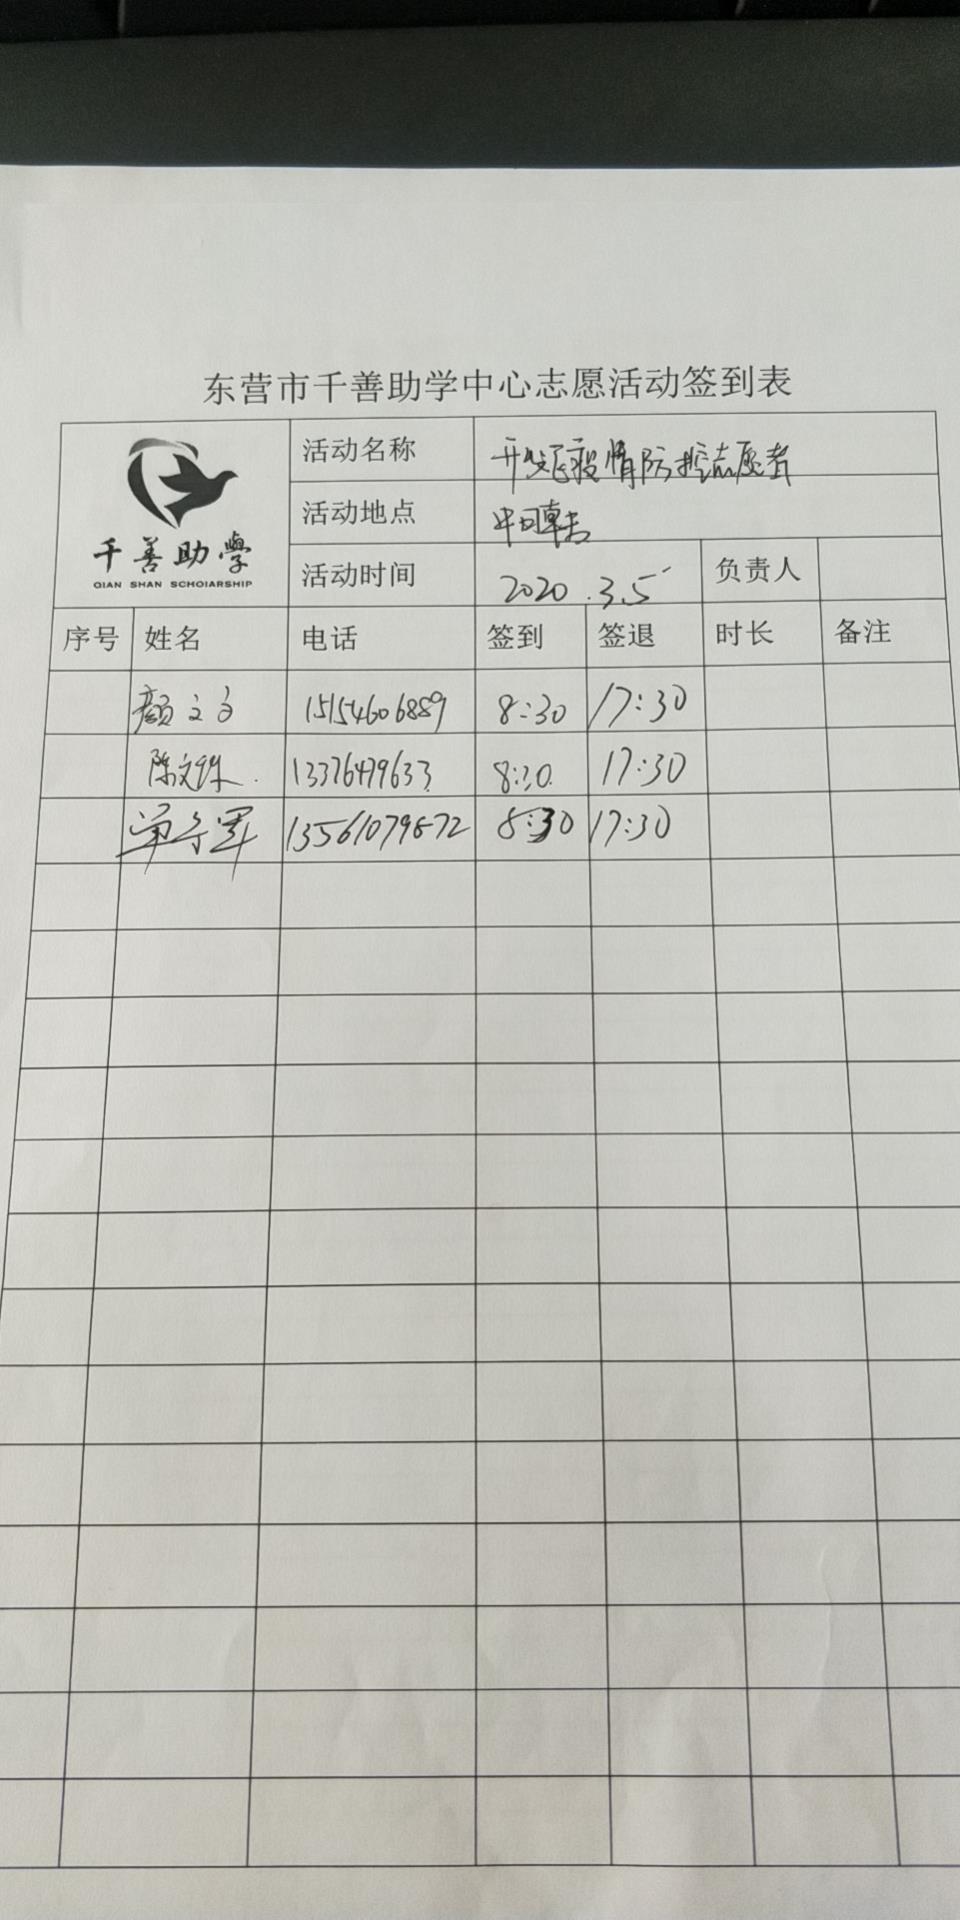 东营市千善助学中心志愿活动签到表
千善助學
QIAN SHAN SCHOIARSHIP
活动名称 开发区疫情防控志愿者
活动地点
活动时间 2020.3.5 负责人
序号 姓名 电话 签到 签退 时长 备注
颜文 15154606889 8:30 17:30
陈文 13376479633 8:30 17:30
军 13561079872 8:30 17:30